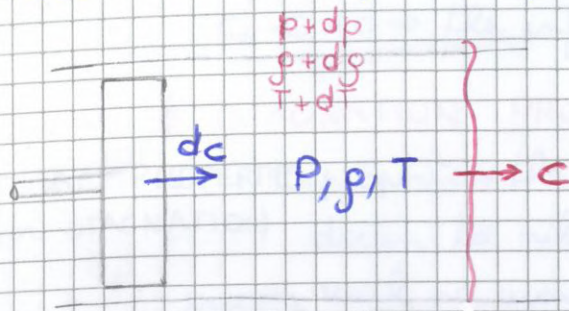 p+dp
ρ+dρ
T+dT
dc
P, ρ, T
c